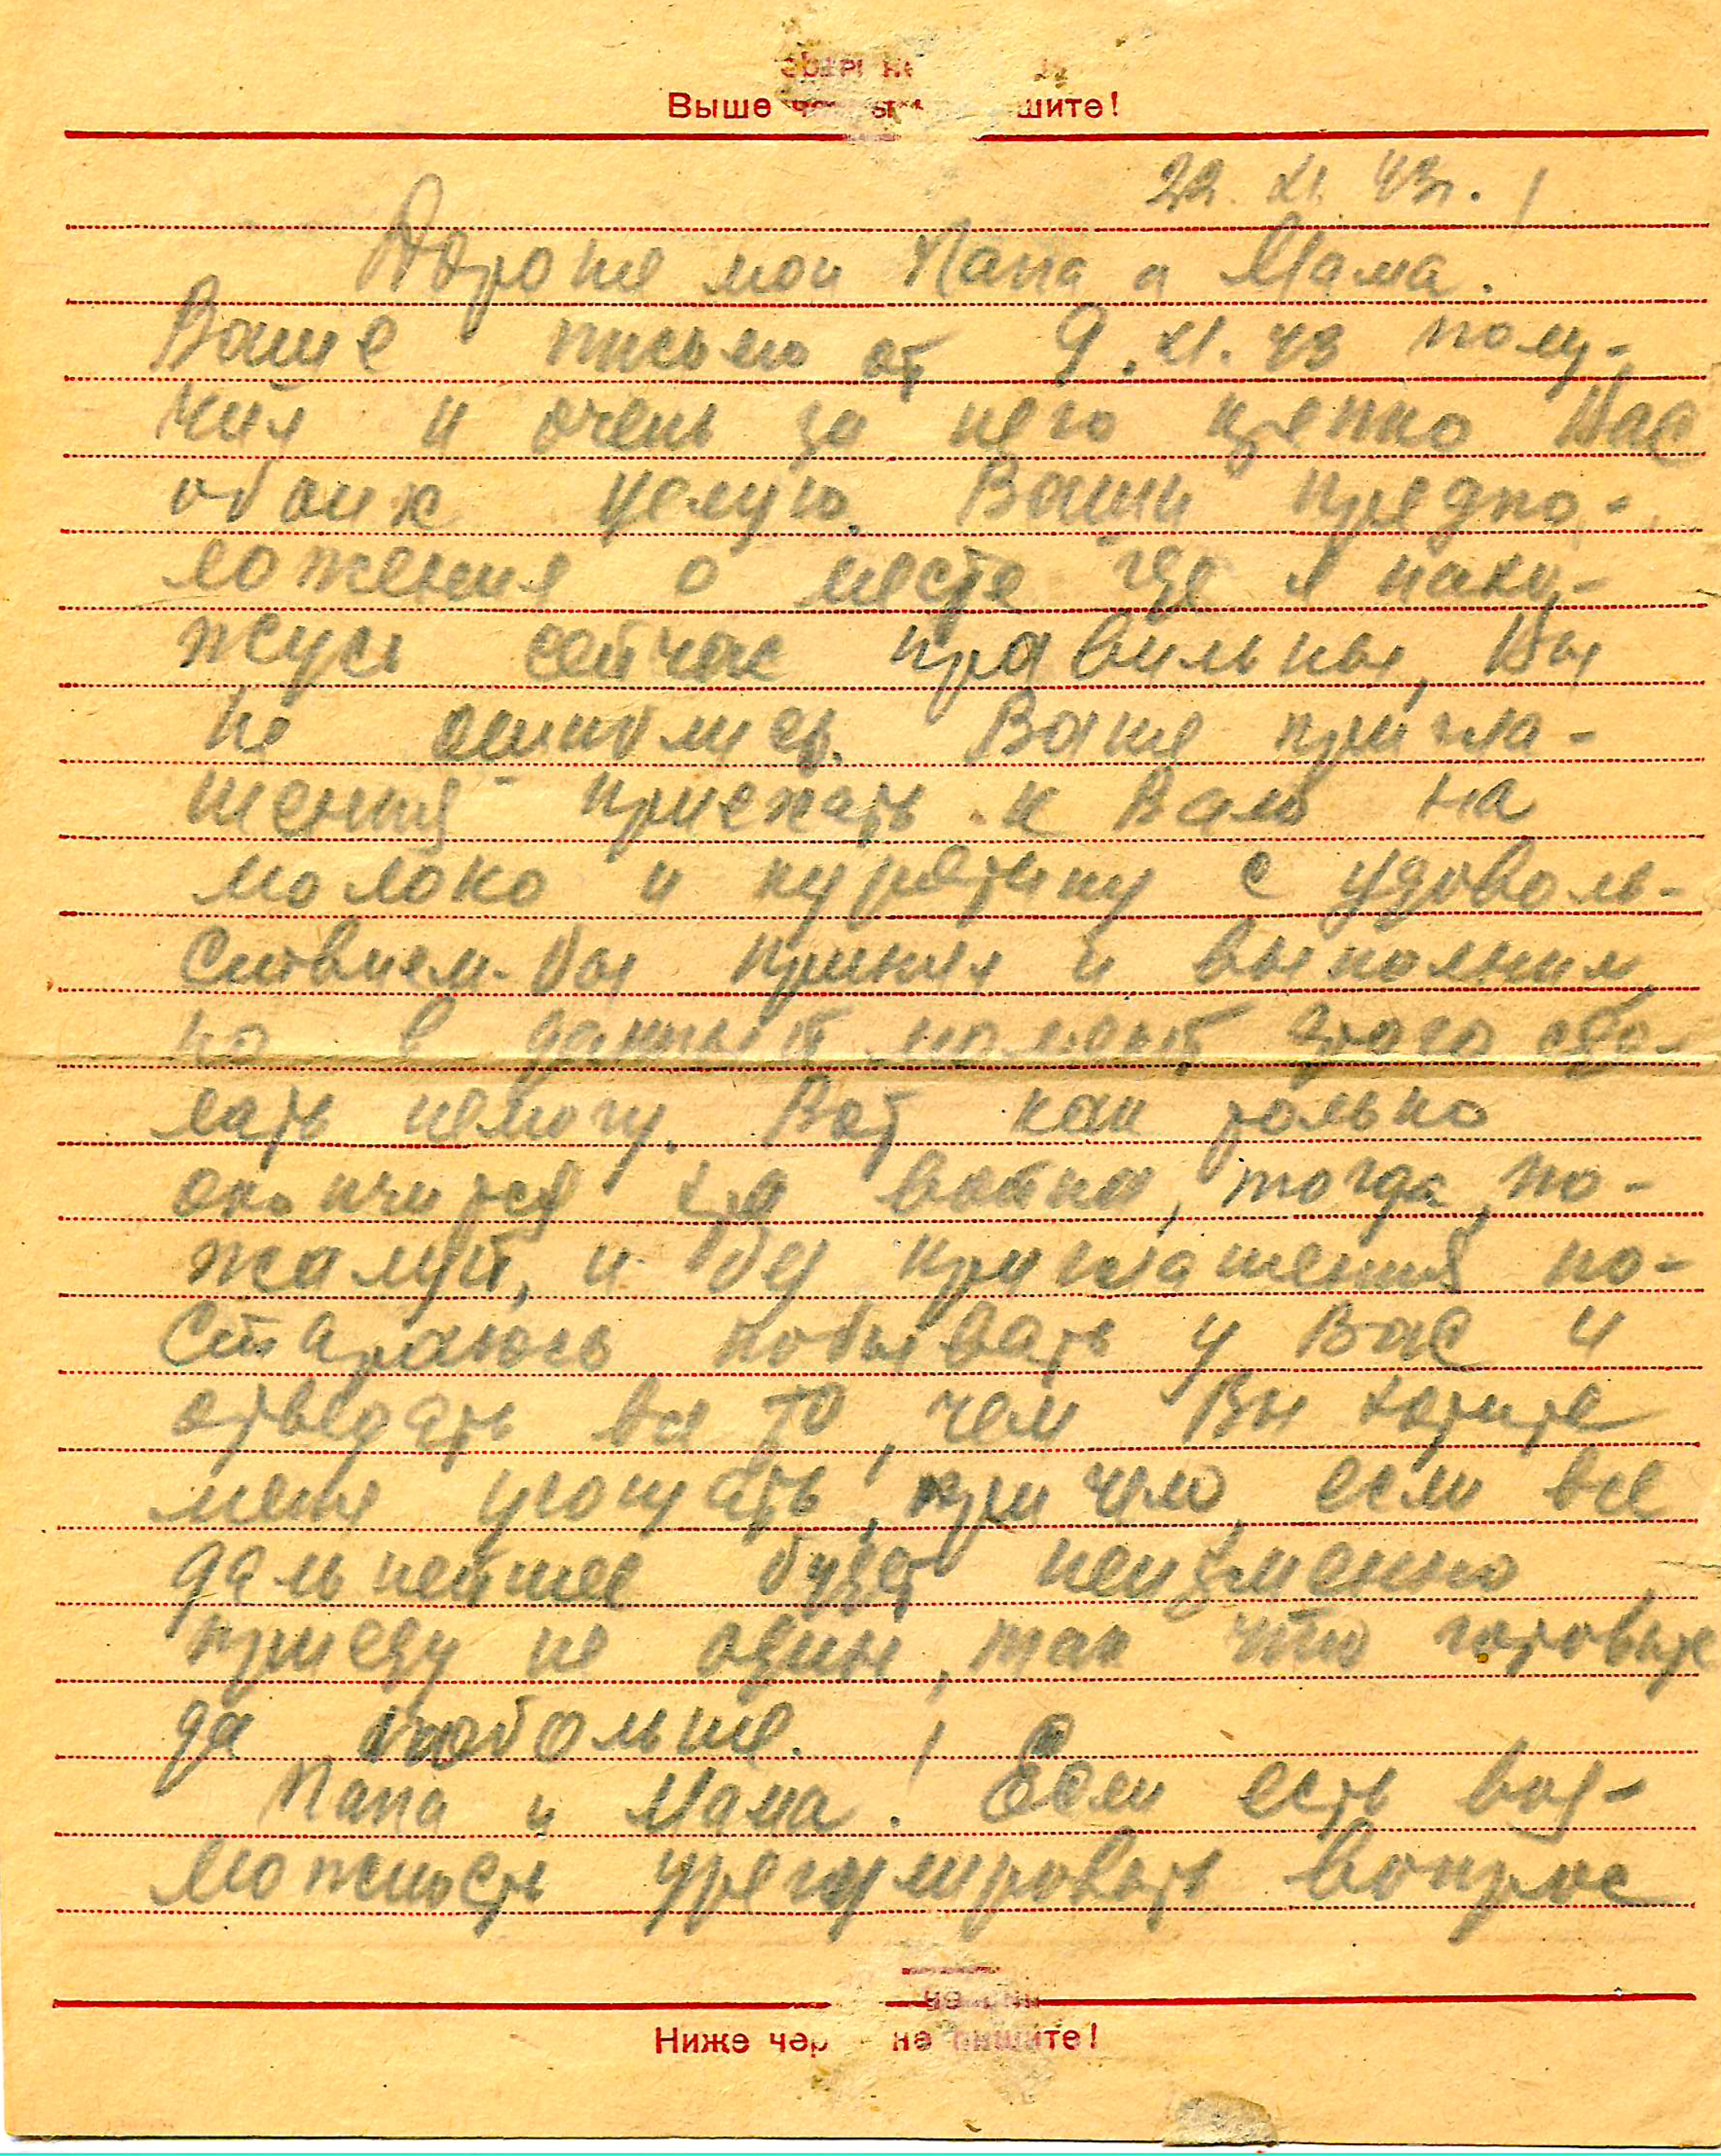 Выше шите!
22. XI. 43г.
Дорогие мои Папа и Мама.
Ваше письмо от 9. XI. 43 полу-
чил и очень за него крепко Вас
обоих целую. Ваши предпо-
ложения о месте где я нахо-
жусь сейчас правильны, Вы
не ошиблись. Ваше пригла-
шения приехать к Вам на
молоко и курятину с удоволь-
ствием бы принял и выполнил,
но в данный момент этого сде-
лать немогу. Вот как только
окончится война, тогда, по-
жалуй, и без приглашения по-
стараюсь побывать у Вас и
отведать все то, чем Вы хотите
меня угощать, при чем, если все
дальнейшее будет неизменно
приеду не один, так что готовьте
да побольше.
Папа и Мама! Если есть воз-
можность урегулировать вопрос
Ниже чер не пишите!